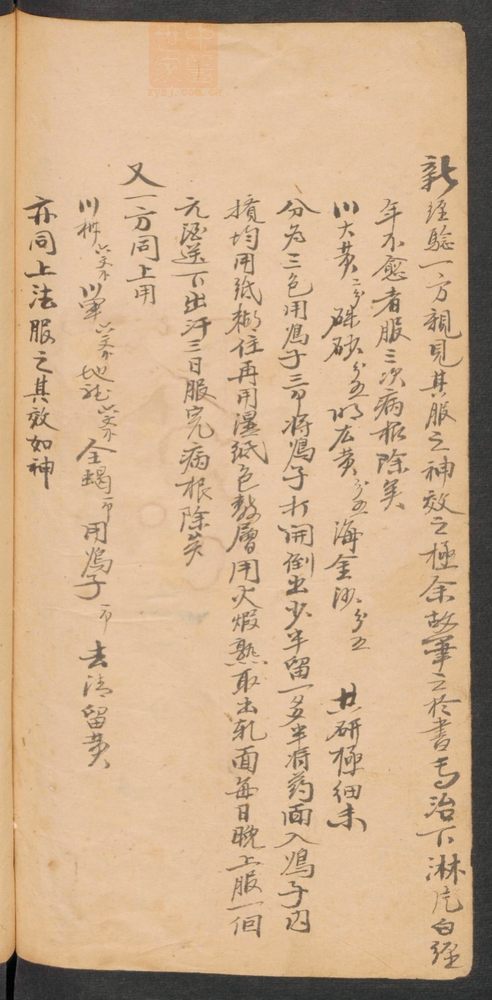 新經驗一方親見其服之神效之極余故筆之於書專治下淋疙白經
年不愈者服三次病根除矣
川大黄二分 硃砂分五 明広黄分五 海金沙分五 共研極細末
分為三包用鳮子三个将鳮子打開倒出少半留一多半将药面入鳮子内
攪均用纸糊住再用濕纸包数層用火煅熟取出轧面每日晚上服一個
元酒送下出汗三日服完病根除矣
又一方同上用
川 川軍 地 全蝎一个 用鳮子一个 去清留黄
亦同上法服之其效如神